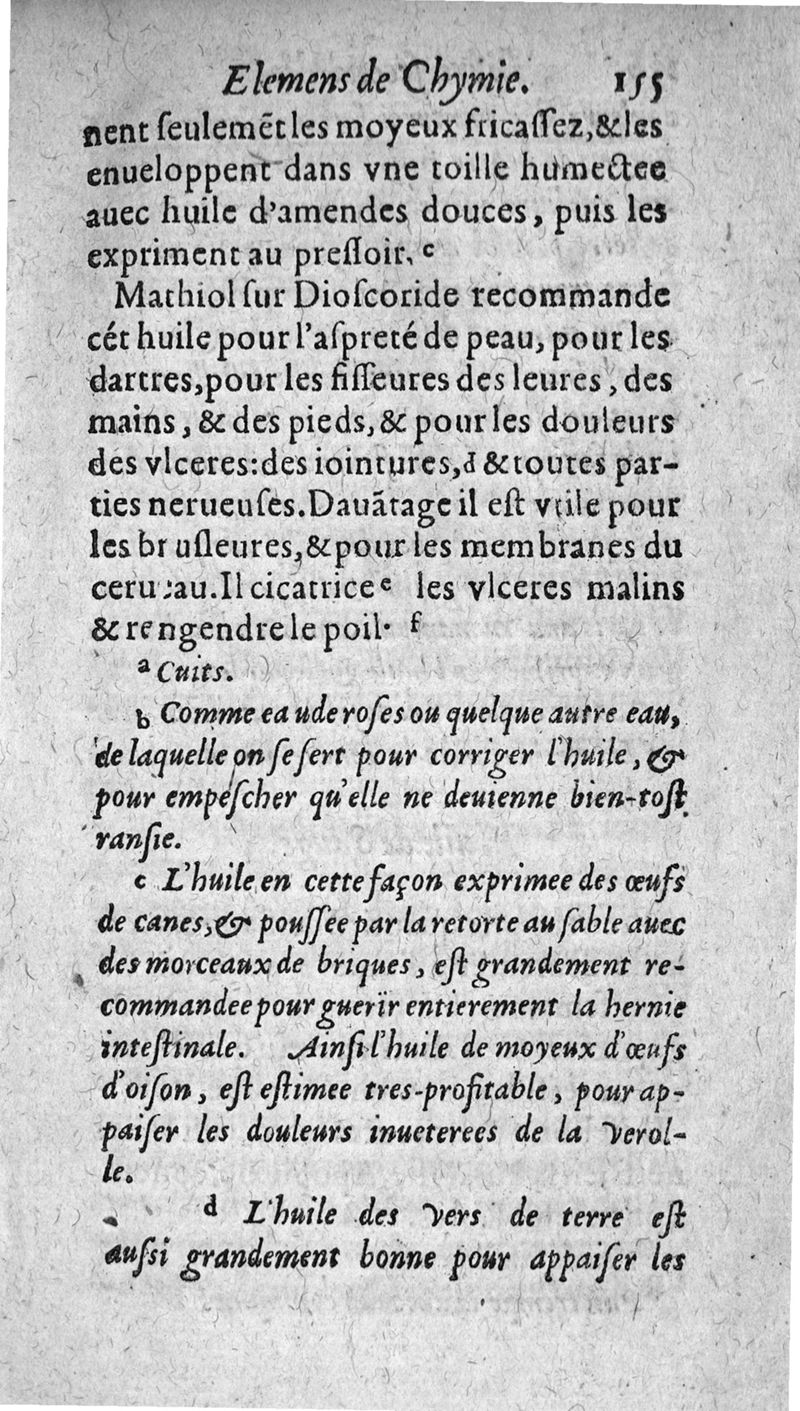 Elemens de Chymie. 155
nent ſeulemẽt les moyeux fricaſſez, & les
enueloppent dans vne toille humectee
auec huile d'amendes douces, puis les
expriment au preſſoir. c
Mathiol ſur Dioſcoride recommande
cét huile pour l'aſpreté de peau, pour les
dartres, pour les fiſſeures des leures, des
mains, & des pieds, & pour les douleurs
des vlceres: des iointures, d & toutes par-
ties nerueuſes. Dauãtage il eſt vtile pour
les bruſleures, & pour les membranes du
cerueau. Il cicatrice e les vlceres malins
& rengendre le poil. f
a Cuits.
b Comme eau de roſes ou quelque autre eau,
de laquelle on ſe ſert pour corriger l'huile, &
pour empeſcher qu'elle ne deuienne bien-toſt
ranſie.
c L'huile en cette façon exprimee des œufs
de canes, & pouſſee par la retorte au ſable auec
des morceaux de briques, eſt grandement re-
commandee pour guerïr entierement la hernie
inteſtinale. Ainſi l'huile de moyeux d'œufs
d'oiſon, eſt eſtimee tres-profitable, pour ap-
paiſer les douleurs inueterees de la verol-
le.
d L'huile des vers de terre eſt
auſsi grandement bonne pour appaiſer les